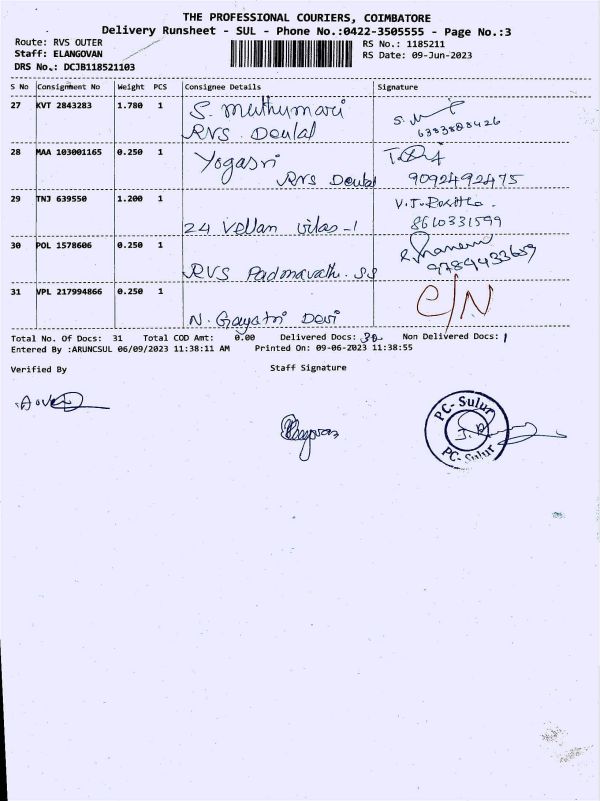 THE PROFESSIONAL COURIERS, COIMBATORE
Delivery Runsheet - SUL - Phone No.:0422-3505555 - Page No.:3
Route: RVS OUTER
RS No.: 1185211
Staff: ELANGOVAN
RS Date: 09-Jun-2023
DRS No.: DCJB118521103
S No Consignment No Weight PCS Consignee Details Signature
27 KVT 2843283 1.780 1 S. Muthumari
RVS Dental
6383808426
28 MAA 103001165 0.250 1 Yogasri
RVS Dental 9092492475
29 TNJ 639550 1.200 1
24 Vellan Vilas-1 8610331599
30 POL 1578606 0.250 1
RVS Padmavathi. SS 9789433659
31 VPL 217994866 0.250 1 C/N
N. Gayatri Devi
Total No. Of Docs: 31 Total COD Amt: 0.00 Delivered Docs: 30 Non Delivered Docs: 1
Entered By :ARUNCSUL 06/09/2023 11:38:11 AM Printed On: 09-06-2023 11:38:55
Verified By Staff Signature
PC-Sulur
PC-Sulur